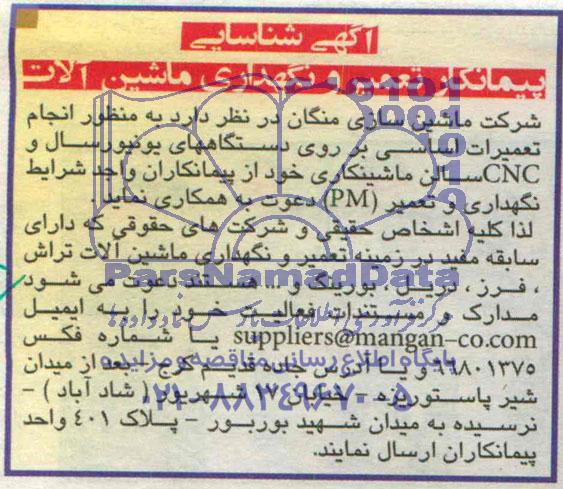 آگهی شناسایی
پیمانکار تعمیر و نگهداری ماشین آلات
شرکت ماشین سازی منگان در نظر دارد به منظور انجام
تعمیرات اساسی بر روی دستگاههای یونیورسال و
CNC سالن ماشینکاری خود از پیمانکاران واجد شرایط
نگهداری و تعمیر (PM) دعوت به همکاری نماید.
لذا کلیه اشخاص حقیقی و شرکت های حقوقی که دارای
سابقه مفید در زمینه تعمیر و نگهداری ماشین آلات تراش
، فرز ، دریل ، بورینگ و ... هستند دعوت می شود
مدارک و مستندات فعالیت خود را به ایمیل
suppliers@mangan-co.com یا شماره فکس
٦٦٨٠١٣٧٥ و یا آدرس جاده قدیم کرج - بعد از میدان
شیر پاستوریزه - خیابان ١٧ شهریور ( شاد آباد ) -
نرسیده به میدان شهید بوربور - پلاک ٤٠١ واحد
پیمانکاران ارسال نمایند.
ParsNamadData
مرکز فرآوری اطلاعات پارس نماد داده ها
پایگاه اطلاع رسانی مناقصه و مزایده
۰۲۱-۸۸۳۴۹۶۷۰-۵